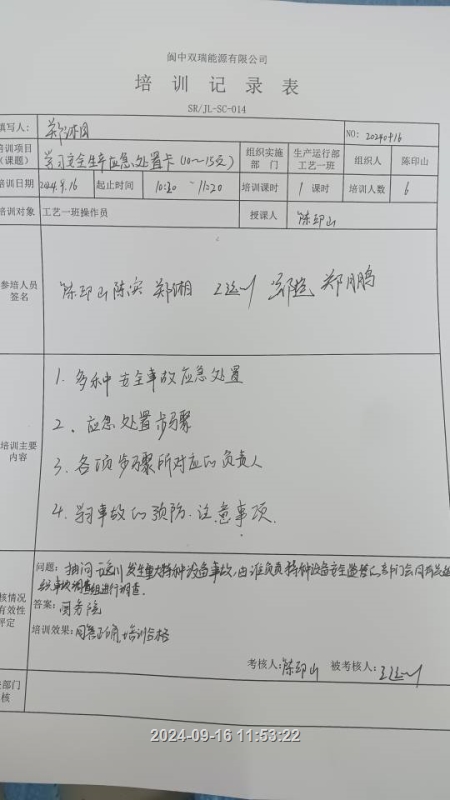 阆中双瑞能源有限公司
培训记录表
SR/JL-SC-014
填写人:
NO: 20240916
培训项目(课题) 学习安全生产应急处置卡(10~15页) 组织实施部门 生产运行部工艺一班 组织人 陈印山
培训日期 2024.9.16 起止时间 10:20 ~11:20 培训课时 1 课时 培训人数 6
培训对象 工艺一班操作员 授课人 陈印山
参培人员签名 陈印山 陈 郑湘 郑鹏
培训主要内容
1. 安全事故应急处置
2. 应急处置步骤
3. 各项步骤所对应的负责人
4. 事故的预防.注意事项.
问题: 抽问 发生重大特种设备事故,由谁负责特种设备安全监督 部门会同有关
事故调查组进行调查.
答案: 国务院
培训效果: 回答正确,培训合格
考核人: 陈印山 被考核人:
2024-09-16 11:53:22